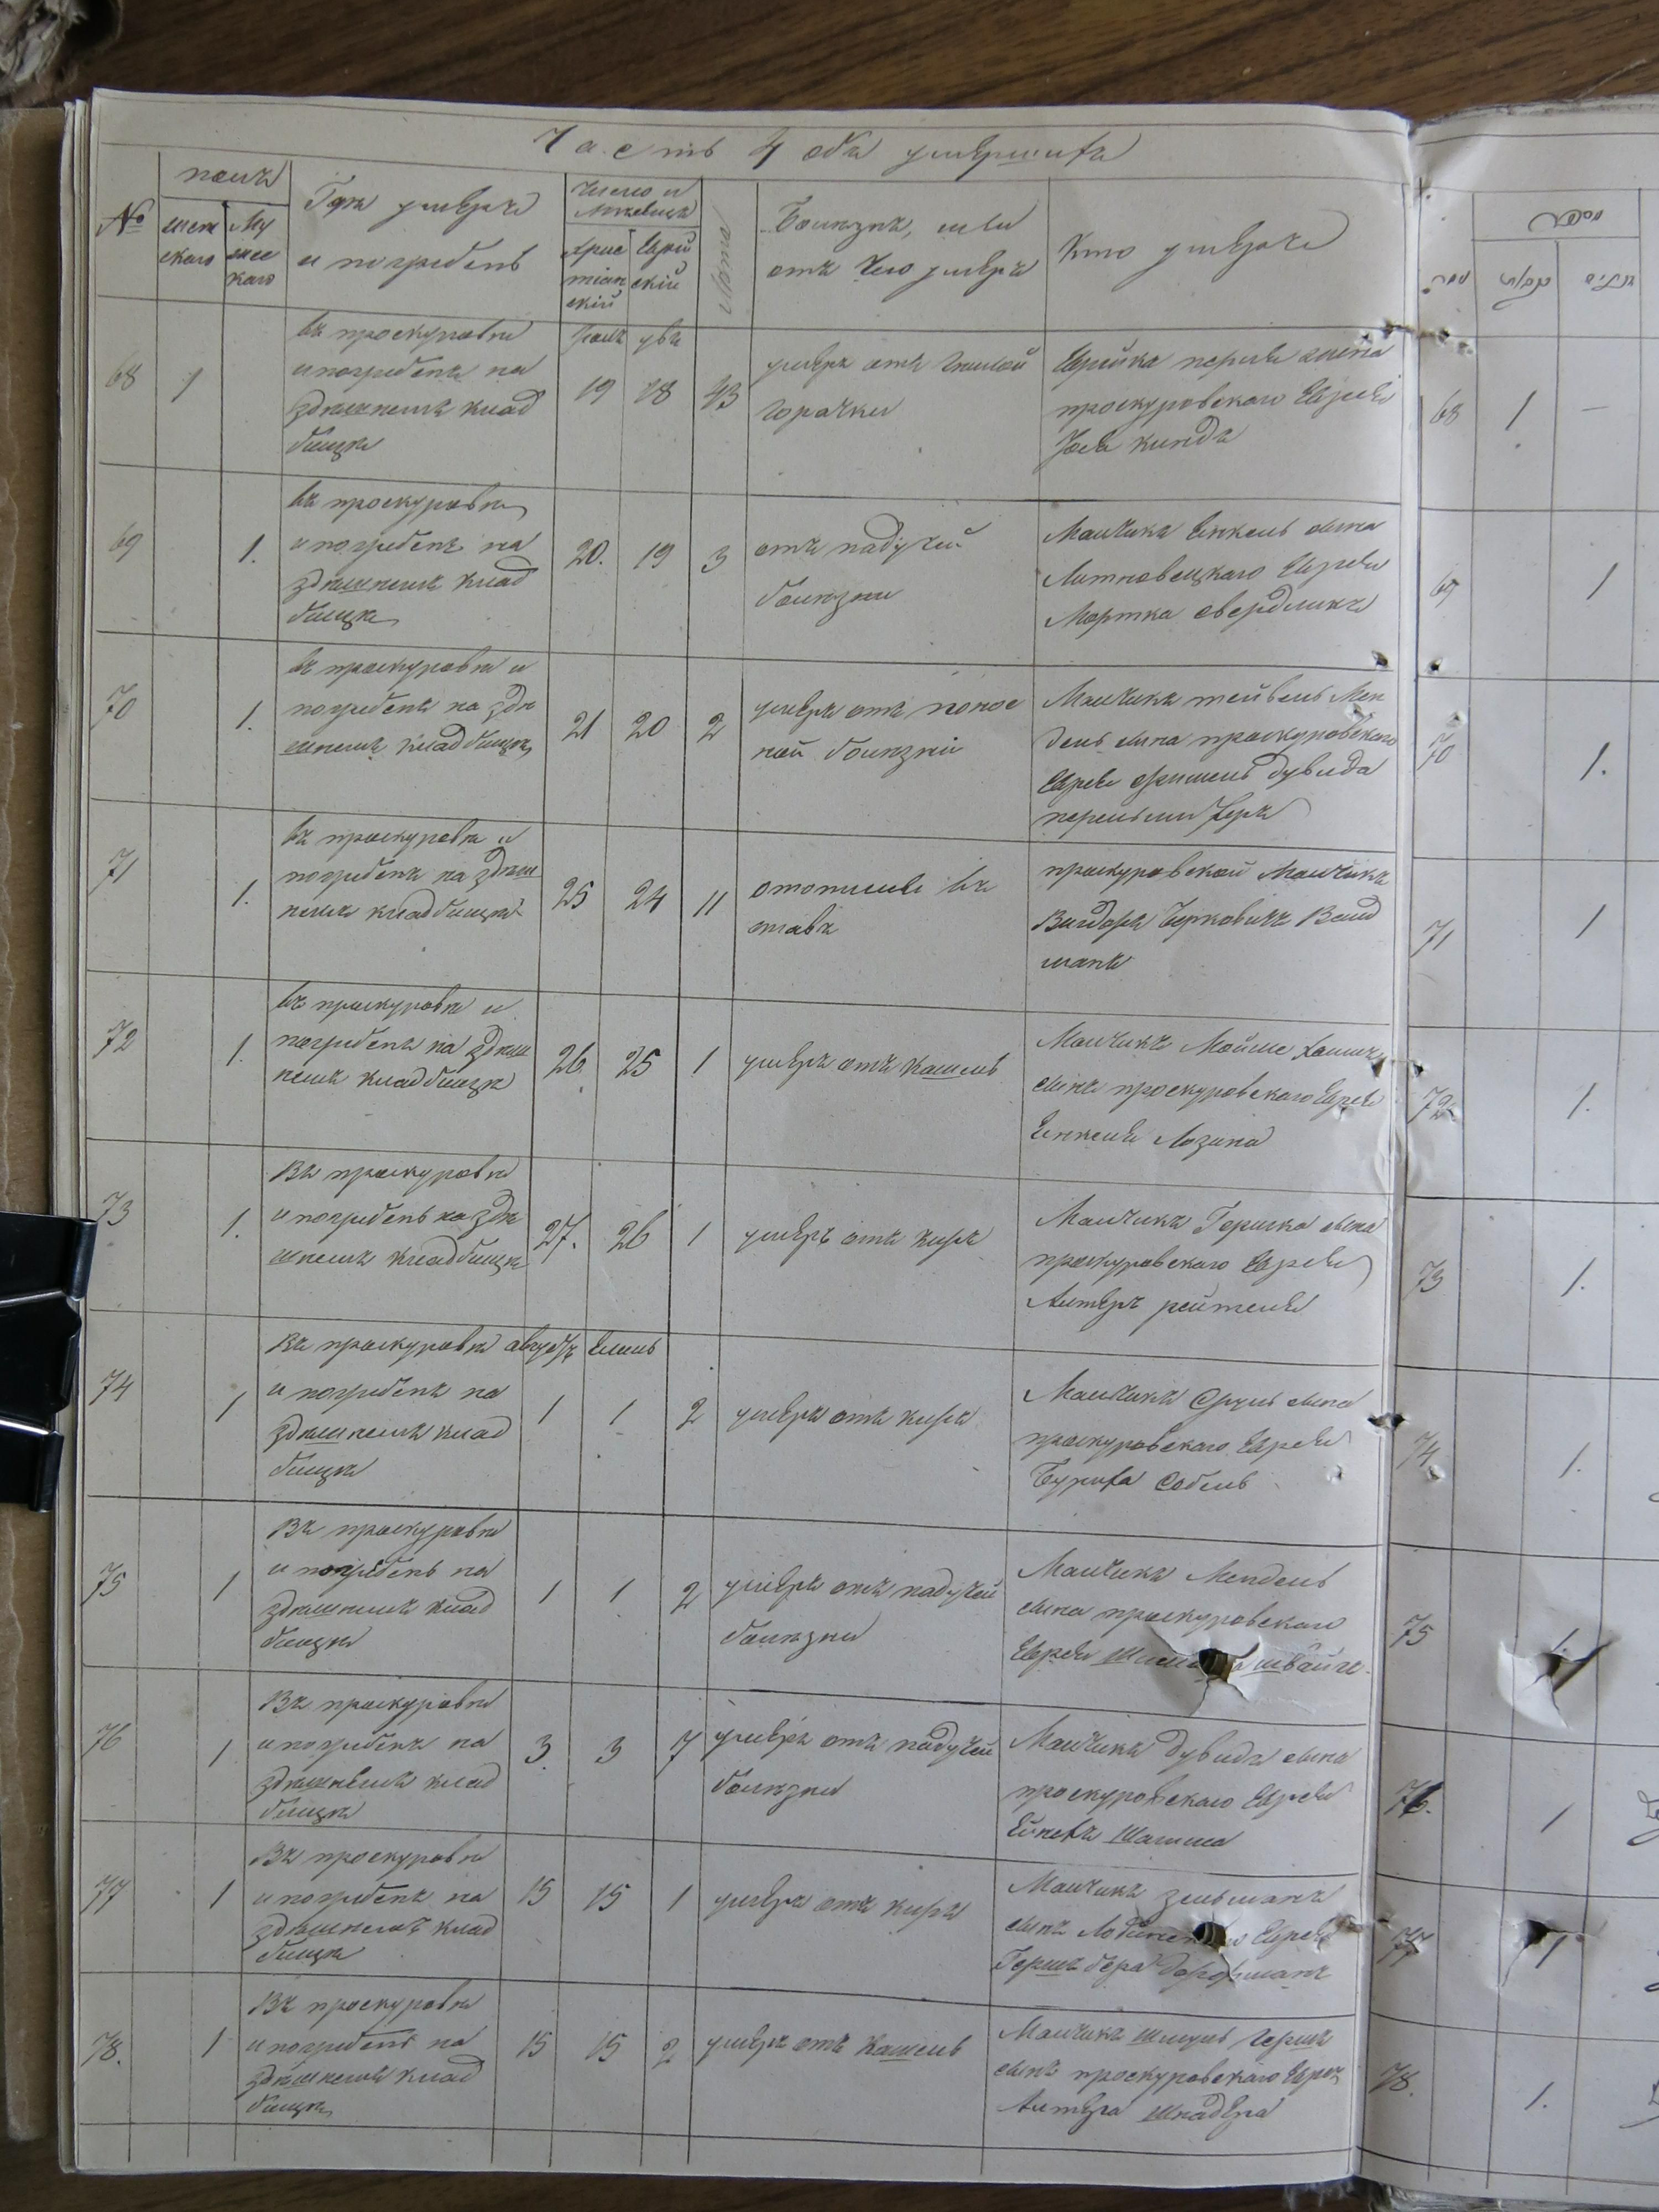 Часть 4 объ умершихъ
№
полъ
женскаго
мужескаго
Гдѣ умеръ
и погребенъ
Число и
Мѣсяцъ
Христианскiй
Еврейскiй
Лѣта
Болѣзнь, или
отъ чего умеръ
Кто умеръ
68 1
въ проскуровѣ
и погребенъ на
здѣшнемъ клад
бищѣ
19 18 43
умеръ отъ
горячки
Еврейка
проскуровского Еврея
69 1.
въ проскуровѣ
и погребенъ на
здѣшнемъ клад
бищѣ
20. 19 3
отъ падучей
болѣзни
Мальчикъ Енкель сына
Еврея
Мортка свердликъ
70 1.
въ проскуровѣ и
погребенъ на здѣ
шнемъ кладбищѣ
21 20 2
умеръ отъ понос
ной болѣзни
Мальчикъ Мен
дель сына проскуровскаго
Еврея дувида
71 1.
въ проскуровѣ и
погребенъ на здѣш
немъ кладбищѣ
25 24 11
въ
ставѣ
проскуровской Мальчикъ
Берковичъ Ванд
манъ
72 1.
въ проскуровѣ и
погребенъ на здѣш
немъ кладбищѣ
26. 25 1
умеръ отъ кашель
Мальчикъ Мойше Хаимъ
сынъ проскуровскаго Еврея
Енкеля Лозина
73 1.
въ проскуровѣ
и погребенъ на здѣ
шнемъ кладбищѣ
27. 26 1
умеръ отъ киръ
Мальчикъ Гершка сына
проскуровскаго Еврея
Алтеръ
74 1
въ проскуровѣ августъ Елюль
и погребенъ на
здѣшнемъ клад
бищѣ
1 1 2
умеръ отъ киръ
Мальчикъ Сруль сына
проскуровскаго Еврея
Буриха Собель
75 1
въ проскуровѣ
и погребенъ на
здѣшнемъ клад
бищѣ
1 1 2
умеръ отъ падучей
болѣзни
Мальчикъ Мендель
сына проскуровскаго
Еврея
76 1
въ проскуровѣ
и погребенъ на
здѣшнемъ клад
бищѣ
3. 3 7
умеръ отъ падучей
болѣзни
Мальчикъ дувидъ сына
проскуровскаго Еврея
77 1
въ проскуровѣ
и погребенъ на
здѣшнемъ клад
бищѣ
15 15 1
умеръ отъ киръ
Мальчикъ зельманъ
сынъ Еврея
Гершъ бера
78. 1
въ проскуровѣ
и погребенъ на
здѣшнемъ клад
бищѣ
15 15 2
умеръ отъ кашель
Мальчикъ шмуль гершъ
сынъ проскуровскаго Еврея
Алтера шнадера
68 1 —
69 1
70 1.
71 1
72 1.
73 1.
74 1.
75 1.
76. 1
77 1
78. 1.